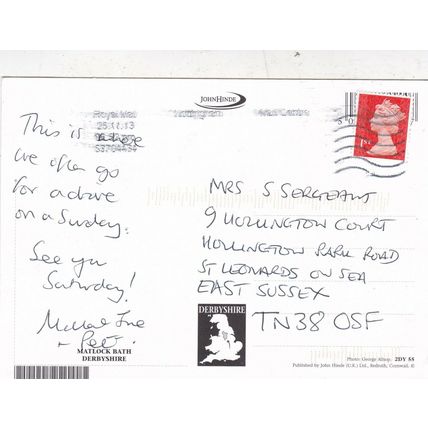 JOHN HINDE
Royal Mail
Nottingham
Mail Centre
25.11.13
53704434
1ST
This is where
we often go
for a drive
on a Sunday.
See you
Saturday!
+ Pete.
MRS S SERGEANT
9 HOLLINGTON COURT
HOLLINGTON PARK ROAD
ST LEONARDS ON SEA
EAST SUSSEX
TN38 0SF
DERBYSHIRE
MATLOCK BATH
DERBYSHIRE
Photo: George Alsop. 2DY 55
Published by John Hinde (U.K.) Ltd., Redruth, Cornwall.